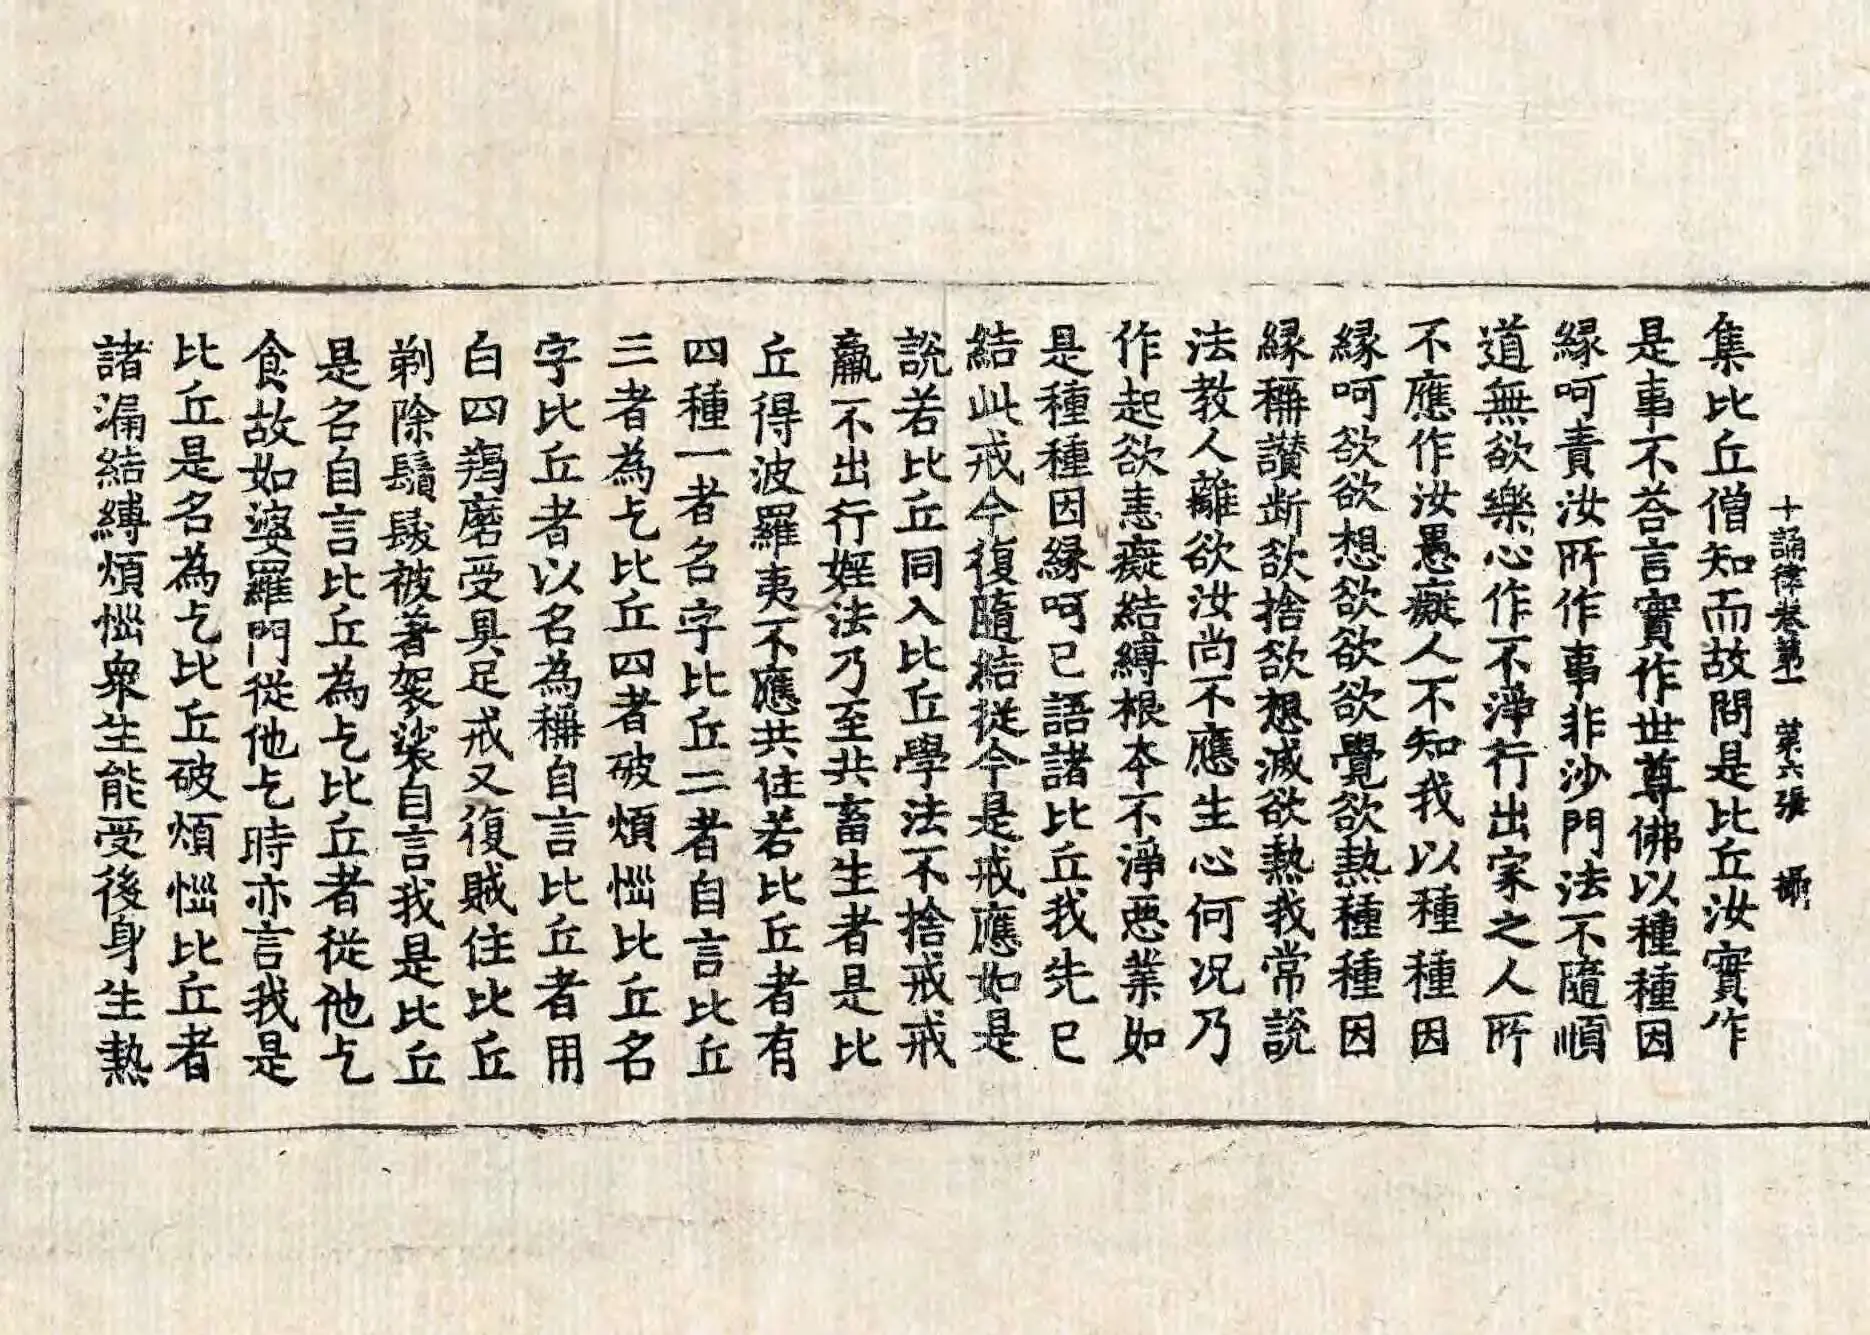 十誦律卷第一　第六張　攝
集比丘僧知而故問是比丘汝實作
是事不荅言實作世尊佛以種種因
緣呵責汝所作事非沙門法不隨順
道無欲樂心作不淨行出家之人所
不應作汝愚癡人不知我以種種因
緣呵欲欲想欲欲欲覺欲熱種種因
緣稱讃断欲捨欲想滅欲熱我常說
法教人離欲汝尚不應生心何況乃
作起欲恚癡結縛根夲不淨惡業如
是種種因緣呵已語諸比丘我先已
結此戒今復隨結從今是戒應如是
說若比丘同入比丘學法不捨戒戒
羸不出行婬法乃至共畜生者是比
丘得波羅夷不應共住若比丘者有
四種一者名字比丘二者自言比丘
三者為乞比丘四者破煩惱比丘名
字比丘者以名為稱自言比丘者用
白四羯磨受具足戒又復賊住比丘
剃除鬚髮被著袈裟自言我是比丘
是名自言比丘為乞比丘者從他乞
食故如婆羅門從他乞時亦言我是
比丘是名為乞比丘破煩惱比丘者
諸漏結縛煩惱衆生能受後身生熱